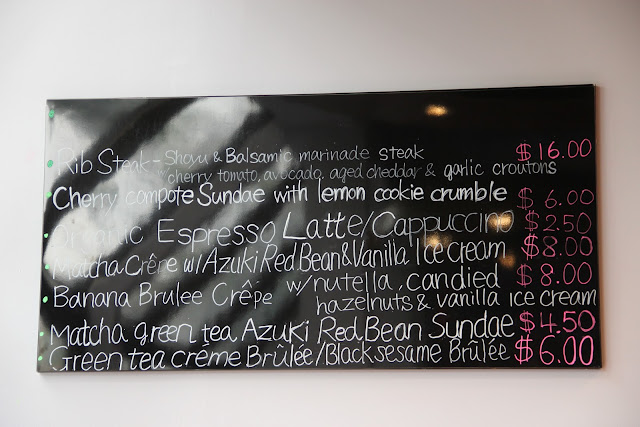 Rib Steak - Shoyu & Balsamic marinade steak $16.00
w/ cherry tomato, avocado, aged cheddar & garlic croutons
Cherry compote Sundae with lemon cookie crumble $6.00
Organic Espresso Latte/Cappuccino $2.50
Matcha Crêpe w/ Azuki Red Bean & Vanilla Ice cream $8.00
Banana Brulee Crêpe w/ nutella, candied $8.00
hazelnuts & vanilla ice cream
Matcha green tea Azuki Red Bean Sundae $4.50
Green tea crème Brûlée/Black sesame Brûlée $6.00